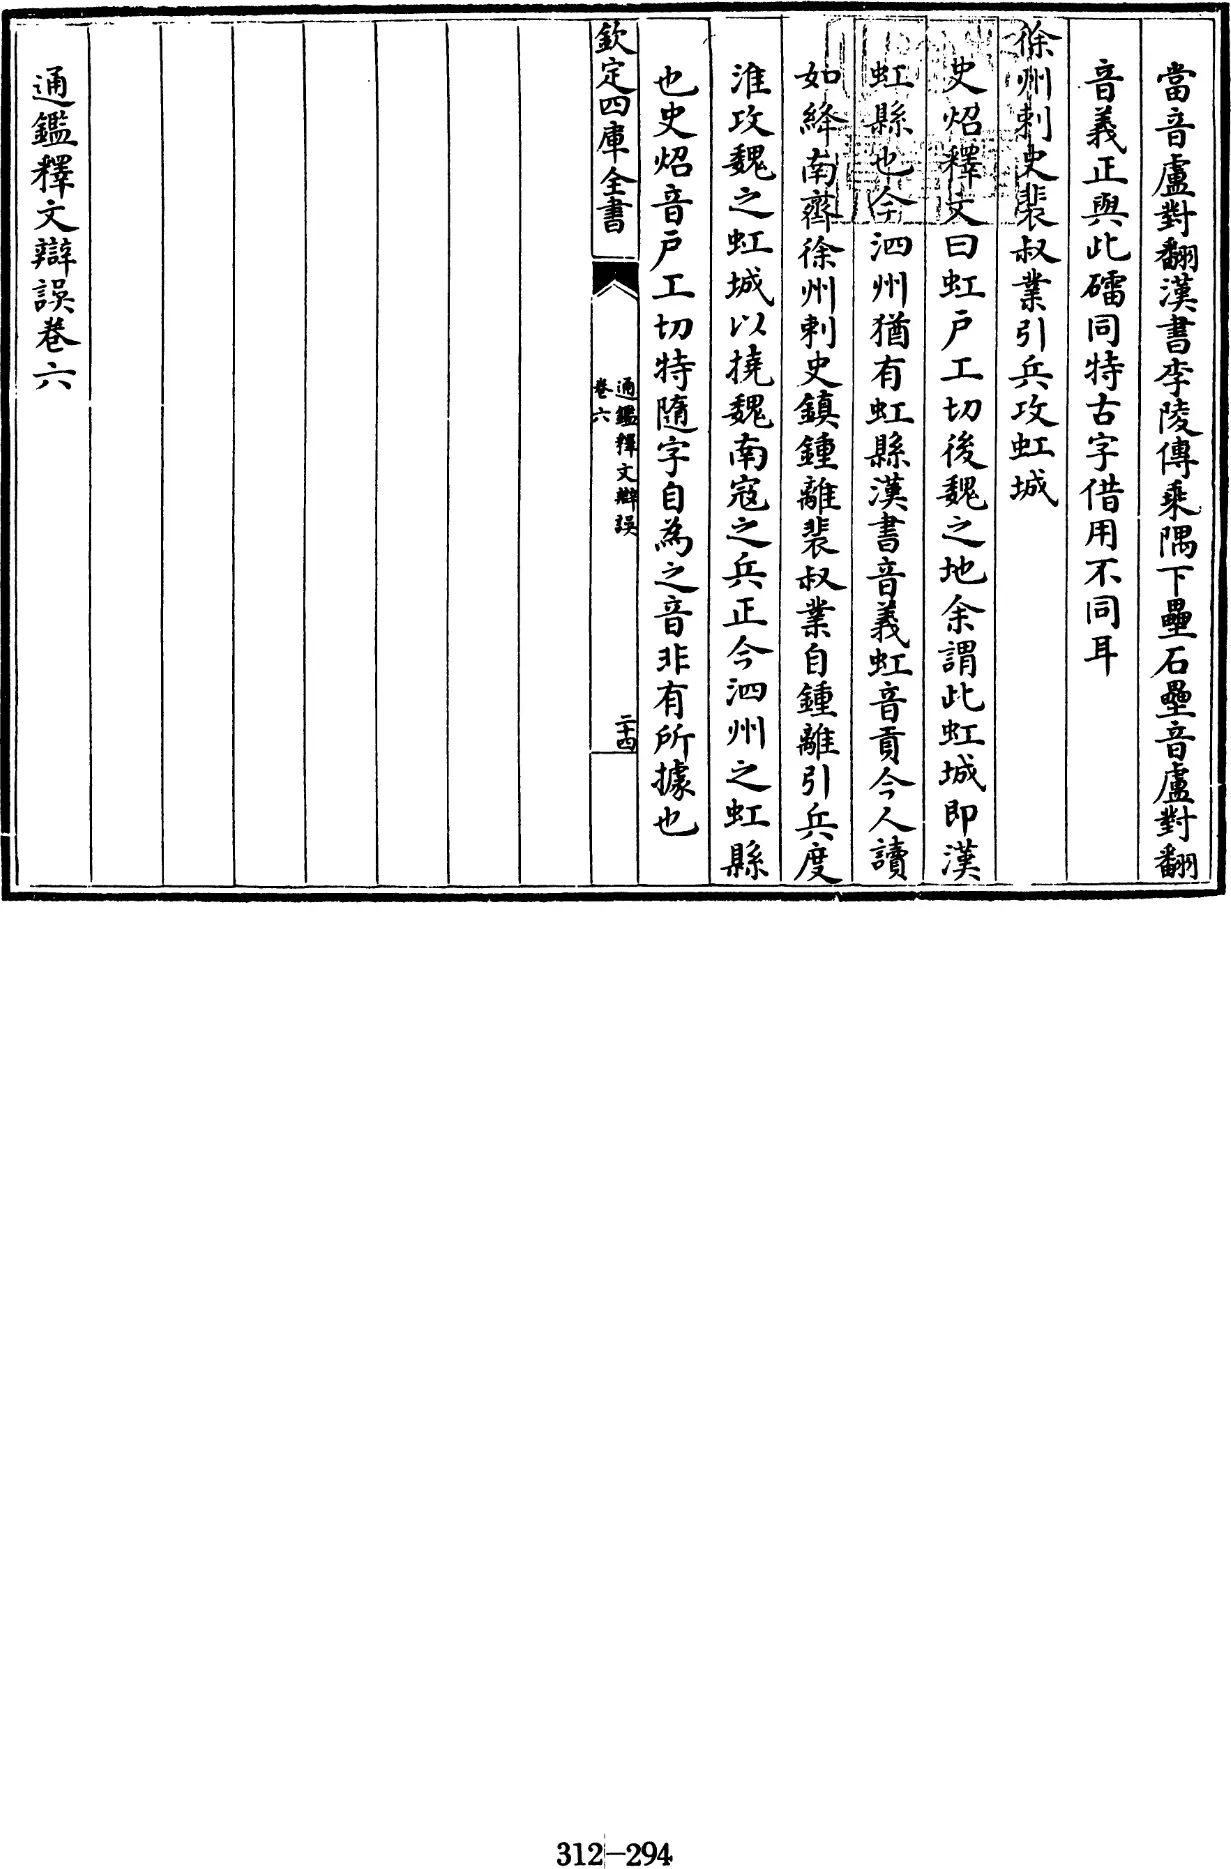 當音盧對翻漢書李陵傳乘隅下壘石壘音盧對翻
音義正與此礌同特古字借用不同耳
徐州刺史裴叔業引兵攻虹城
史炤釋文曰虹户工切後魏之地余謂此虹城即漢
虹縣也今泗州猶有虹縣漢書音義虹音貢今人讀
如絳南齊徐州刺史鎮鍾離裴叔業自鍾離引兵度
淮攻魏之虹城以撓魏南寇之兵正今泗州之虹縣
也史炤音户工切特隨字自為之音非有所據也
欽定四庫全書
通鑑釋文辯誤
卷六
二十四
通鑑釋文辯誤卷六
312-294